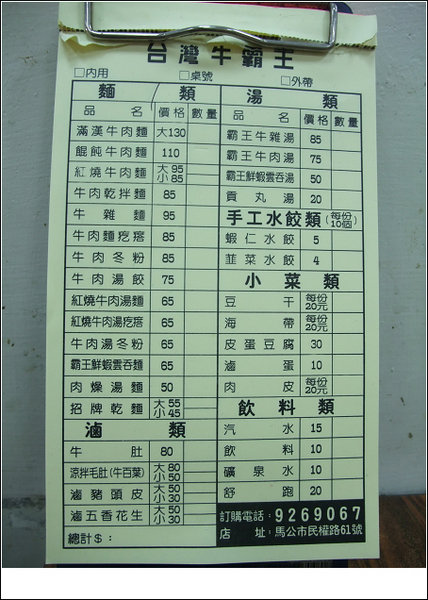 台灣牛霸王
□內用 □桌號 □外帶
麵類
品名 價格 數量
滿漢牛肉麵 大130
餛飩牛肉麵 110
紅燒牛肉麵 大95 小85
牛肉乾拌麵 85
牛雜麵 95
牛肉麵疙瘩 85
牛肉冬粉 85
牛肉湯餃 75
紅燒牛肉湯麵 65
紅燒牛肉湯疙瘩 65
牛肉湯冬粉 65
霸王鮮蝦雲吞麵 65
肉燥湯麵 50
招牌乾麵 大55 小45
滷類
牛肚 80
涼拌毛肚(牛百葉) 大80 小50
滷豬頭皮 大50 小30
滷五香花生 大50 小30
總計$:
湯類
品名 價格 數量
霸王牛雜湯 85
霸王牛肉湯 75
霸王鮮蝦雲吞湯 50
貢丸湯 20
手工水餃類(每份10個)
蝦仁水餃 5
韮菜水餃 4
小菜類
豆干 每份20元
海帶 每份20元
皮蛋豆腐 30
滷蛋 10
肉皮 每份20元
飲料類
汽水 15
飲料 10
礦泉水 10
舒跑 20
訂購電話:9269067
店址:馬公市民權路61號